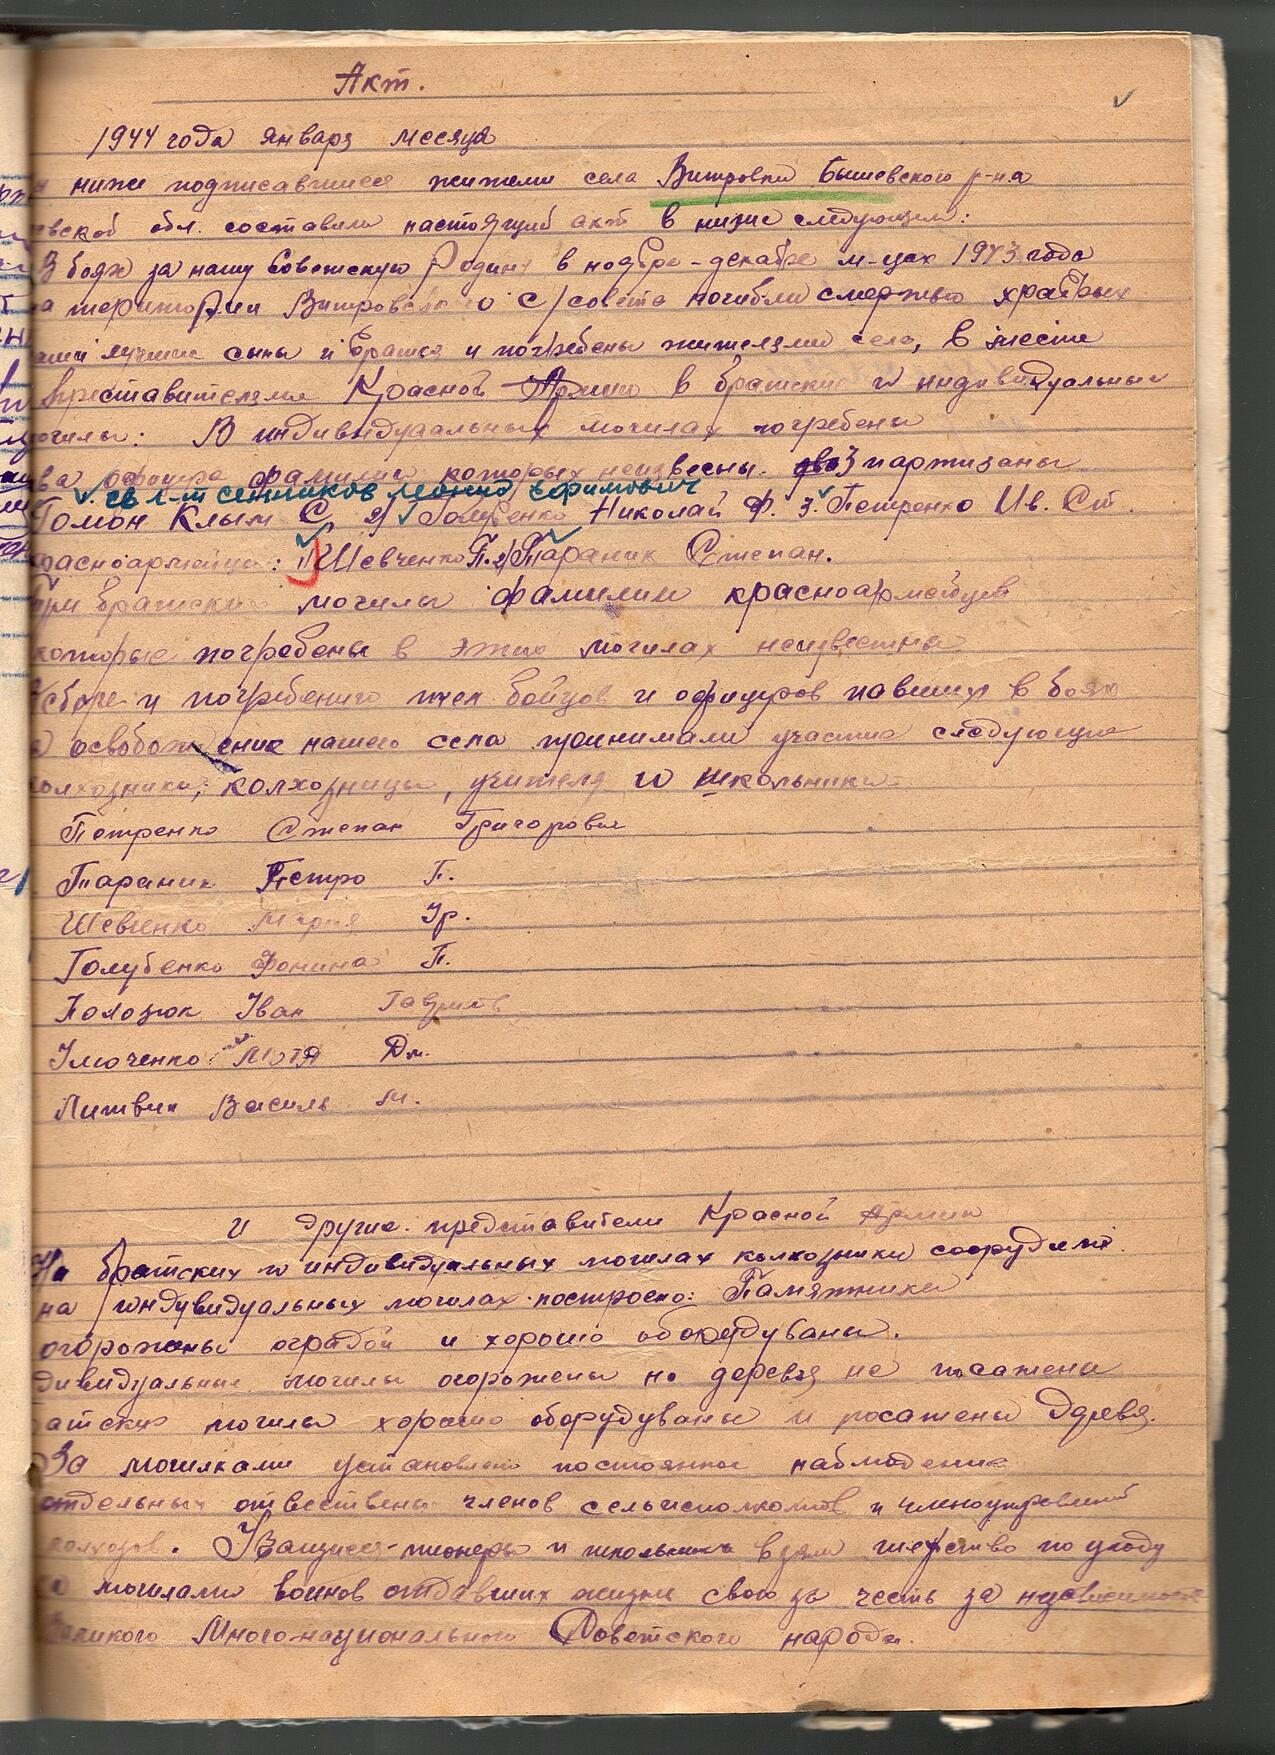 Акт.
1944 года января месяца
ниже подписавшиеся жители села Витровки Бышевского р-на
евской обл. составили настоящий акт в ниже следующем:
В боях за нашу Советскую Родину в ноябре-декабре м-цах 1943 года
на територии Витровского с/совета погибли смертью храбрых
лучшие сыны и братья и погребены жителями села, в месте
представителями Красной Армии в братские и индивидуальные
могилы: В индивидуальных могилах погребены
ва офицера фамилии которых неизвесны. 3 партизаны
гв л-т сенников леонид ефимович
Гомон Клым С. 2) Голубенко Николай Ф. 3. Петренко Ив. Ст.
расноармейцы: 1) Шевченко П. 2) Тараник Степан.
Три братских могилы фамилии красноармейцев
которые погребены в этих могилах неизвестны
сборе и погребению тел бойцов и офицеров павших в боях
освобождение нашего села принимали участие следующие
колхозники, колхозницы, учителя и школьники:
Петренко Степан Григоровья
Тараник Петро П.
Шевченко Мария Гр.
Голубенко Фонина П.
Полозюк Іван Гаврилов
Мотя Дм.
Литвин Василь М.
и другие представители Красной Армии
На братских и индивидуальных могилах колхозники соорудили
на индувидуальных могилах построено: Памятники
огорожены оградой и хорошо оборудуваны.
дивидуальные могилы огорожены но деревя не посажены
атских могилы хорошо оборудуваны и посажены деревя.
За могилками установлено постоянное наблюдение
отдельных отвествены членов сельисполкомов и
колхозов. пионеры и школьники взяли шефство по уходу
могилами воинов отдавших жизни свою за честь за независимость
Великого Много-национального Советского народа.